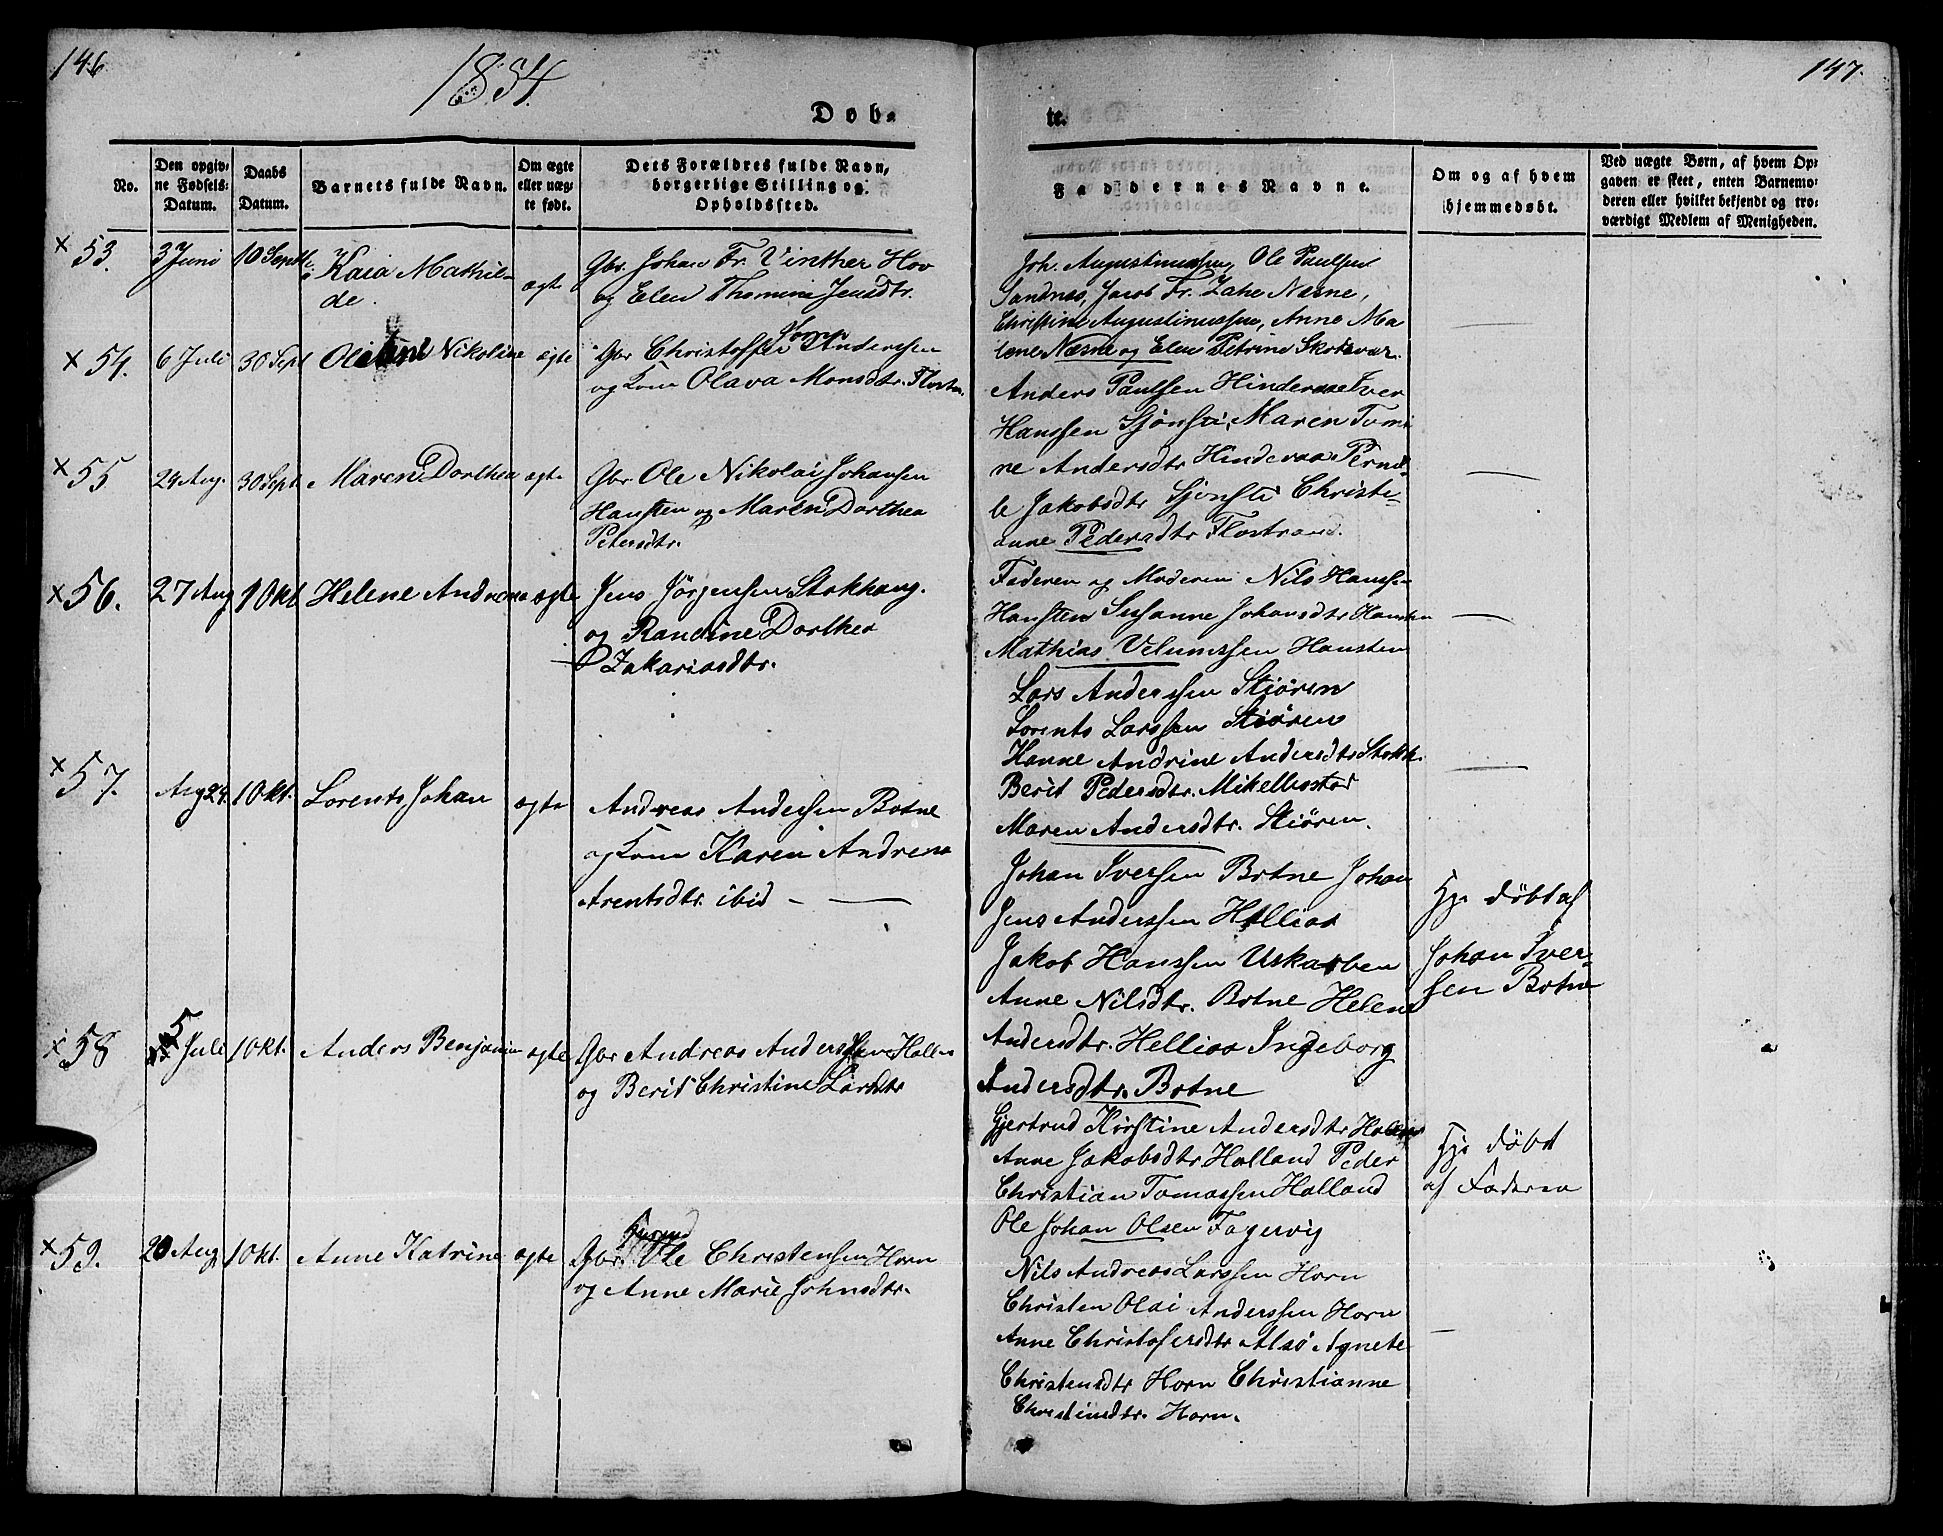 146
1854.
Døb-
No.
Den opgiv-
ne Fødsels-
Datum.
Daabs
Datum.
Barnets fulde Navn.
Om ægte
eller uæg-
te født.
Dets Forældres fulde Navn,
borgerlige Stilling og
Opholdssted.
x 53.
3 Juni
10 Septb.
Kaia Mathil-
de.
ægte
Gbr. Johan Fr. Vinther Hov
og Elen Thomine Jensdtr.
x 54.
6 Juli
30 Sept
Nikoline
ægte
Gbr Christoffer Anderssen
og Kone Olava Monsdtr.
x 55
24 Aug.
30 Sept
Maren Dorthea
ægte
Gbr. Ole Nikolai Johansen
Hansten og Maren Dorthea
Petersdtr.
x 56.
27 Aug
1 Okt
Helene Andrena
ægte
Jens Jörgensen Stokhaug.
og Randine Dorthea
Zakariasdtr.
x 57.
Aug 24.
1 Okt.
Lorents Johan
ægte
Andreas Anderssen Botne
og Kone Karen Andrena
Arentsdtr. ibid -
x 58
5 Juli
1 Okt.
Anders Benjamin
ægte
Gbr Andreas Anderssen
og Berit Christine Larsdtr
x 59.
20 Aug
1 Okt.
Anne Katrine
ægte
Gbr. Ole Christensen Horn
og Anne Marie Johnsdtr.
147.
te.
Faddernes Navne.
Om og af hvem
hjemmedøbt.
Ved uægte Børn, af hvem Op-
gaven er skeet, enten Barnemo-
deren eller hvilket bekjendt og tro-
værdigt Medlem af Menigheden.
Joh. Augustinussen, Ole Paulsen
Sandnes, Jacob Fr. Zahl Næsne,
Christine Augustinussen, Anne Ma
lene Næsne og Elen Petrine Skotsvær.
Anders Paulsen Hinderaa Iver
Hanssen Sjonsti, Maren Tomi
ne Andersdtr Hinderaa Pernil-
le Jakobsdtr Sjonsti Christi-
anne Pedersdtr Flostrand.
Faderen og Moderen Nils Hanssen
Hansten Susanne Johansdtr Hansten
Mathias Hansten
Lars Anderssen Stiören
Lorents Larssen Stiören
Hanne Andrine Andersdtr Stokh.
Berit Pedersdtr. Mikelbostad
Maren Andersdtr. Stiören.
Johan Iversen Botne Johan
Jens Anderssen Hellias
Jakob Hanssen Uskarben
Anne Nilsdtr. Botne Helene
Andersdtr. Hellias Ingeborg
Andersdtr. Botne
Hj. döbt af
Johan Iver-
sen Botne
Gjertrud Kirstine Andersdtr
Anne Jakobsdtr Halland Peder
Christian Tomassen Halland
Ole Johan Olsen Fagervig
Hj. döbt
af Faderen
Nils Andreas Larssen Horn
Christen Olai Anderssen Horn
Anne Christofersdtr Alsö Agnete
Christensdtr Horn Christianne
Christinsdtr. Horn.